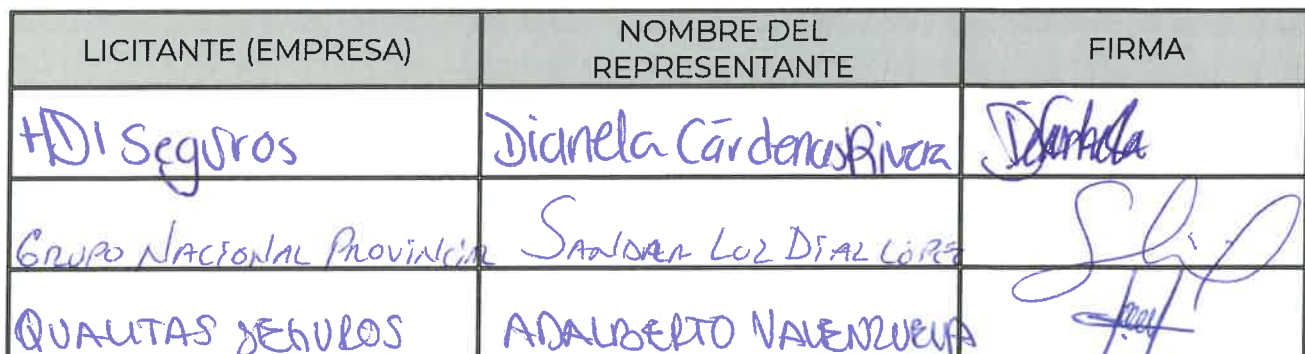 LICITANTE (EMPRESA)
NOMBRE DEL
REPRESENTANTE
FIRMA
HDI Seguros
Dianela Cárdenas Rivera
GRUPO NACIONAL PROVINCIAL
SANDRA LUZ DÍAZ LÓPEZ
QUALITAS SEGUROS
ADALBERTO VALENZUELA